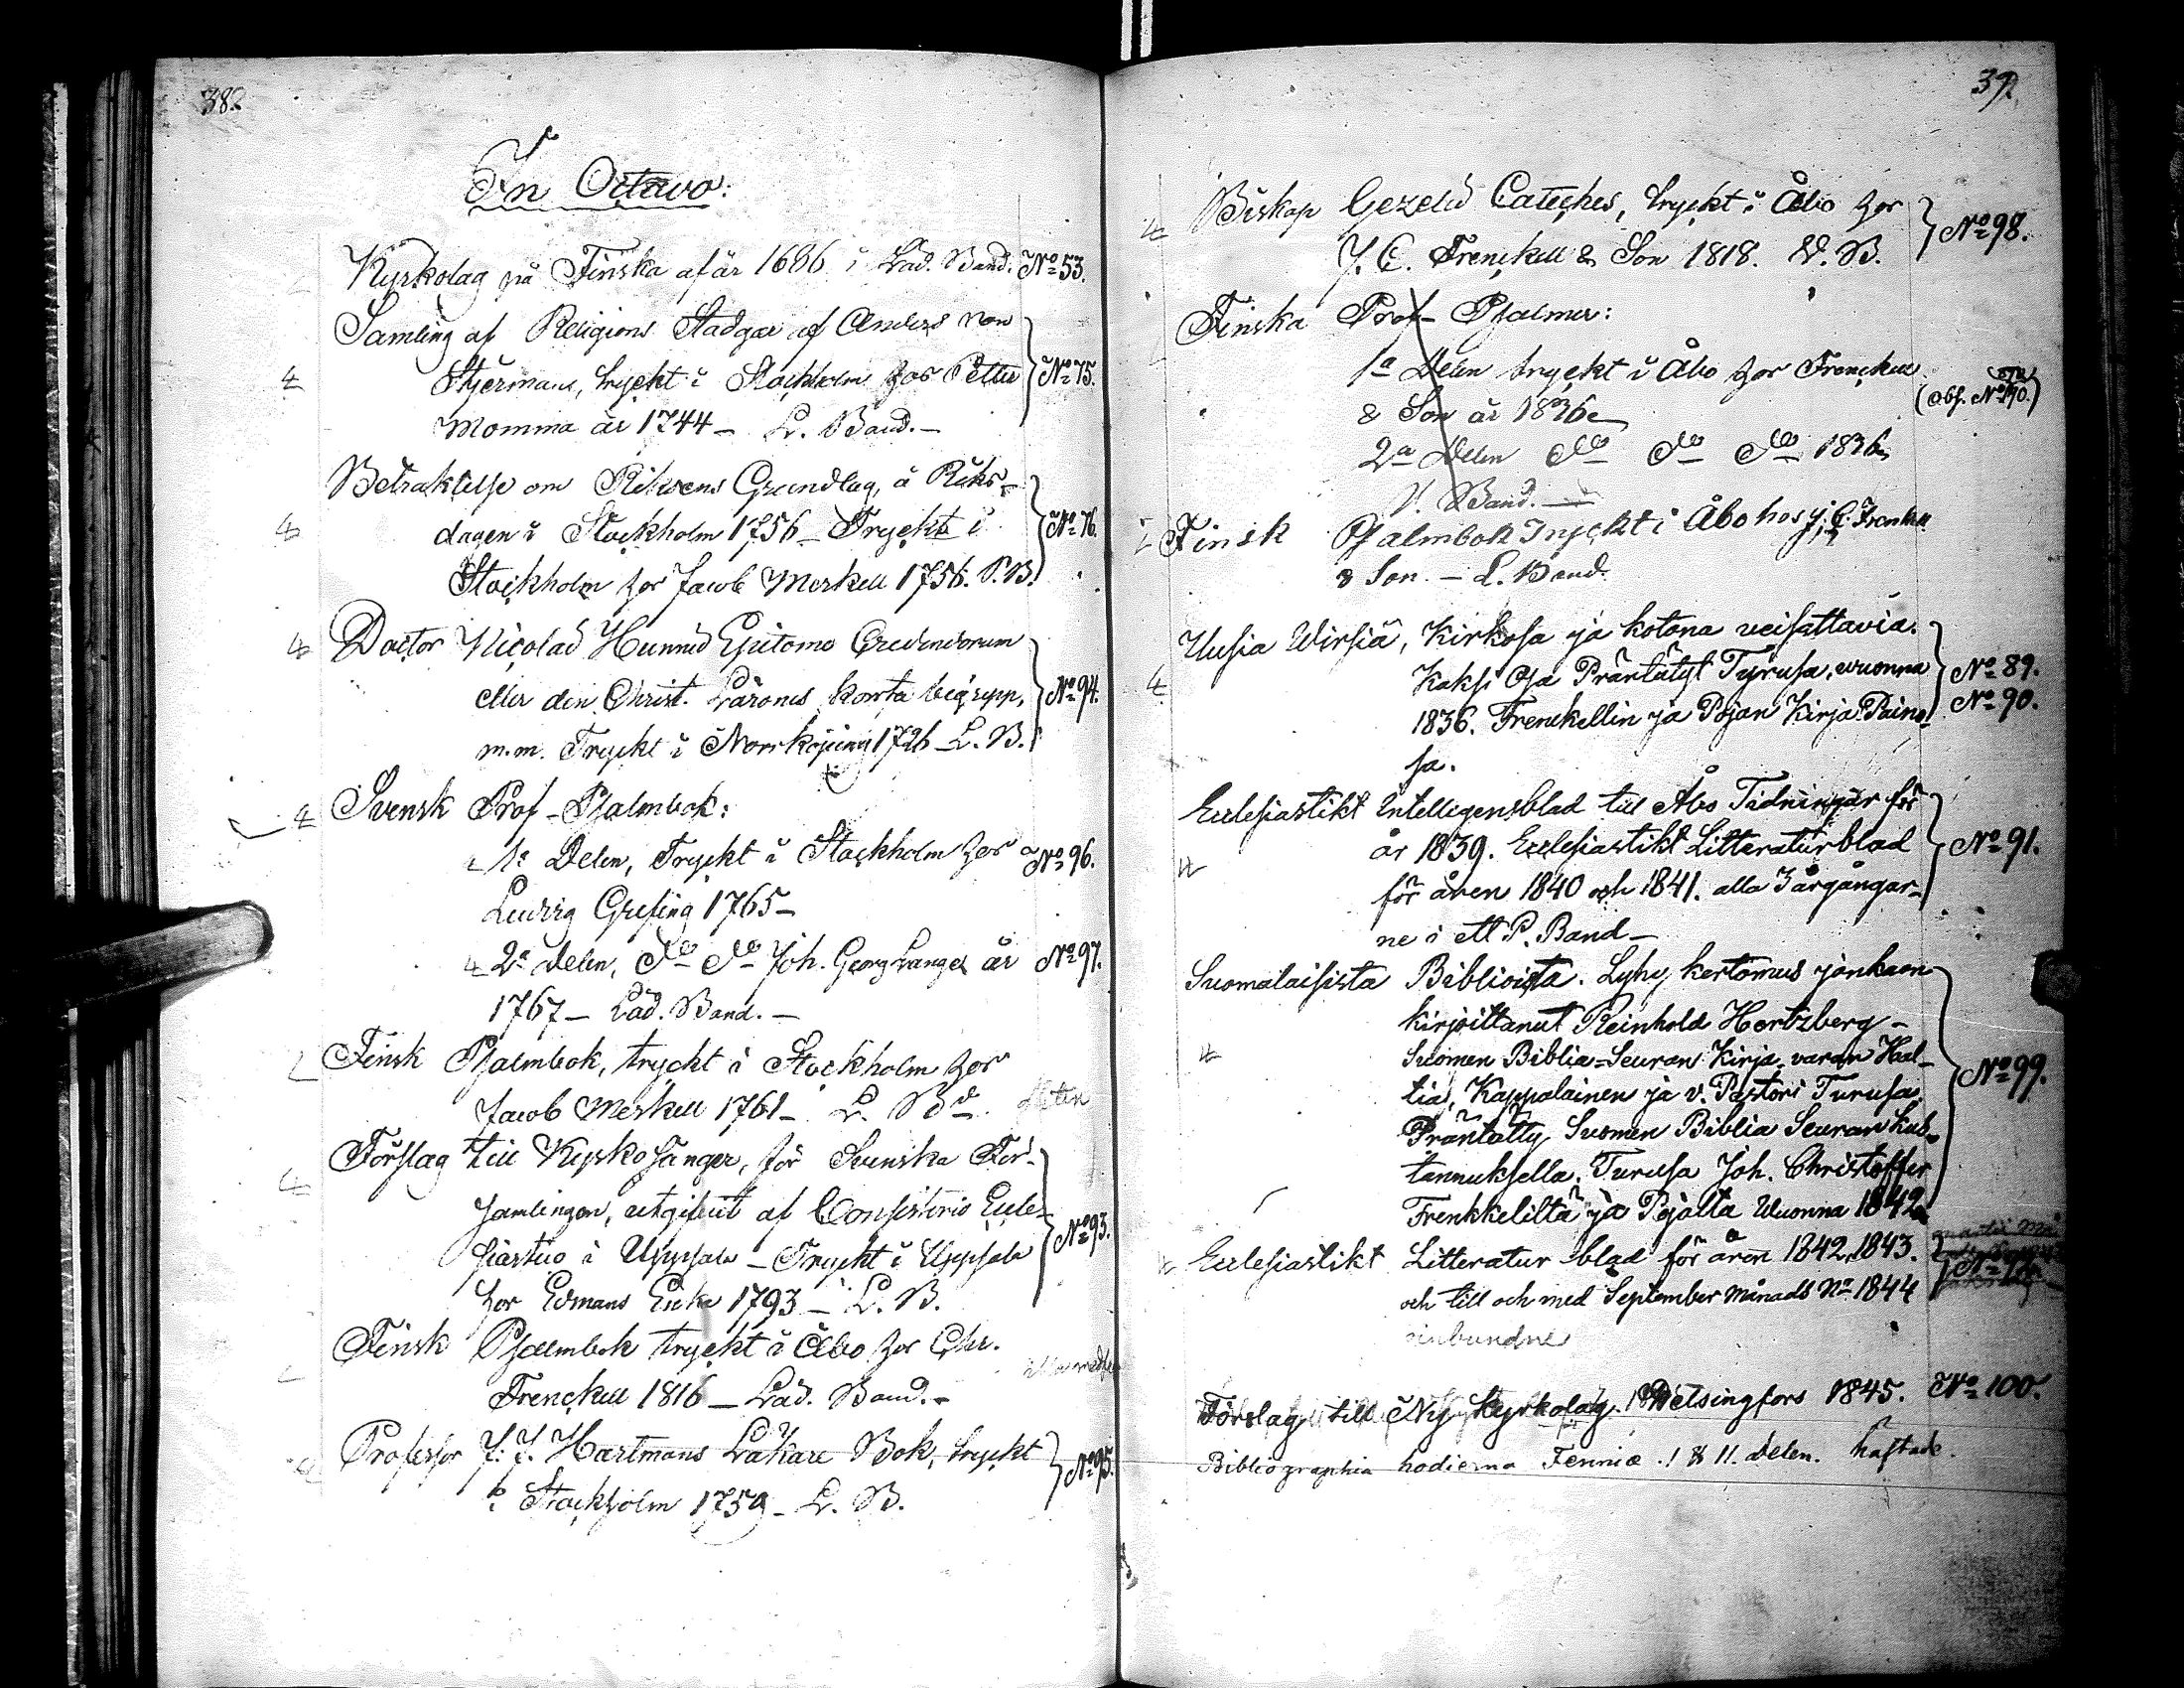 382
In Octavo:
Kyrkolag på Finska af år 1686 i Läd. Band. No 53.
Samling af Religions Stadgar af Anders von
Stjerman, tryckt i Stockholm hos Petter No 75.
Momma år 1744 - L. Band. -
Betraktelse om Riksens Grundlag, å Riks-
dagen i Stockholm 1756 - Tryckt i No 76.
Stockholm hos Jacob Merkell 1756. P. B.
Doctor Nicolai Hunnii Epitome Credendorum
eller den Christ. Lärones korta begrepp, No 94.
m.m. Tryckt i Norrköping 1726 - L. B.
Svensk Prof-Psalmbok:
1a Delen, Tryckt i Stockholm hos No 96.
Ludvig Grefing 1765 -
2a Delen, do do Joh. Georg Lange år No 97.
1767 - Läd. Band. -
Finsk Psalmbok, tryckt i Stockholm hos
Jacob Merkell 1761 - L. Bd
Förslag till Kyrko sånger, för Svenska För-
samlingen, utgifvit af Consistorio Eccle-
siastico i Uppsala - Tryckt i Uppsala No 93.
hos Edmans Enka 1793 - L. B.
Finsk Psalmbok tryckt i Åbo hos Chr.
Frenckell 1816 - Läd. Band. -
Professor J. J. Hartmans Läkare Bok, tryckt No 95.
i Stockholm 1759 - L. B.
392.
Biskop Gezelii Cateches, tryckt i Åbo hos
J. C. Frenckell & Son 1818. V. B. No 98.
Finska Prof-Psalmer:
1a Delen tryckt i Åbo hos Frenckell
& Son år 1836 (obs. No 90.)
2a Delen do do do 1836
V. Band. -
Finsk Psalmbok Tryckt i Åbo hos J. C. Frenkell
& Son. - L. Band.
Uusia Wirsiä, Kirkosa ja kotona veisattavia.
Kaksi Osa Präntätyt Turusa, wuonna No 89.
1836. Frenckellin ja Pojan Kirja-Paino- No 90.
sa.
Ecclesiastikt Intelligensblad till Åbo Tidningar för
år 1839. Ecclesiastikt Litteraturblad No 91.
för åren 1840 och 1841. alla 3 årgångar-
ne i ett P. Band -
Suomalaisista Biblioista. Lyhy kertomus jonkaon
kirjoittanut Reinhold Hertzberg -
Suomen Biblia-Seuran Kirja-varan Hal-
tia, Kappalainen ja v. Pastori Turusa. No 99.
Präntätty Suomen Biblia Seuran kus-
tannuksella. Turusa Joh. Christoffer
Frenkkelilta ja Pojalta Wuonna 1842
Ecclesiastikt Litteratur blad för åren 1842, 1843.
och till och med September månads No 1844
inbundne
Förslag till Ny Kyrkolag. Helsingfors 1845. No 100.
Bibliographia hodierna Fenniæ. I & II. delen. häftade.